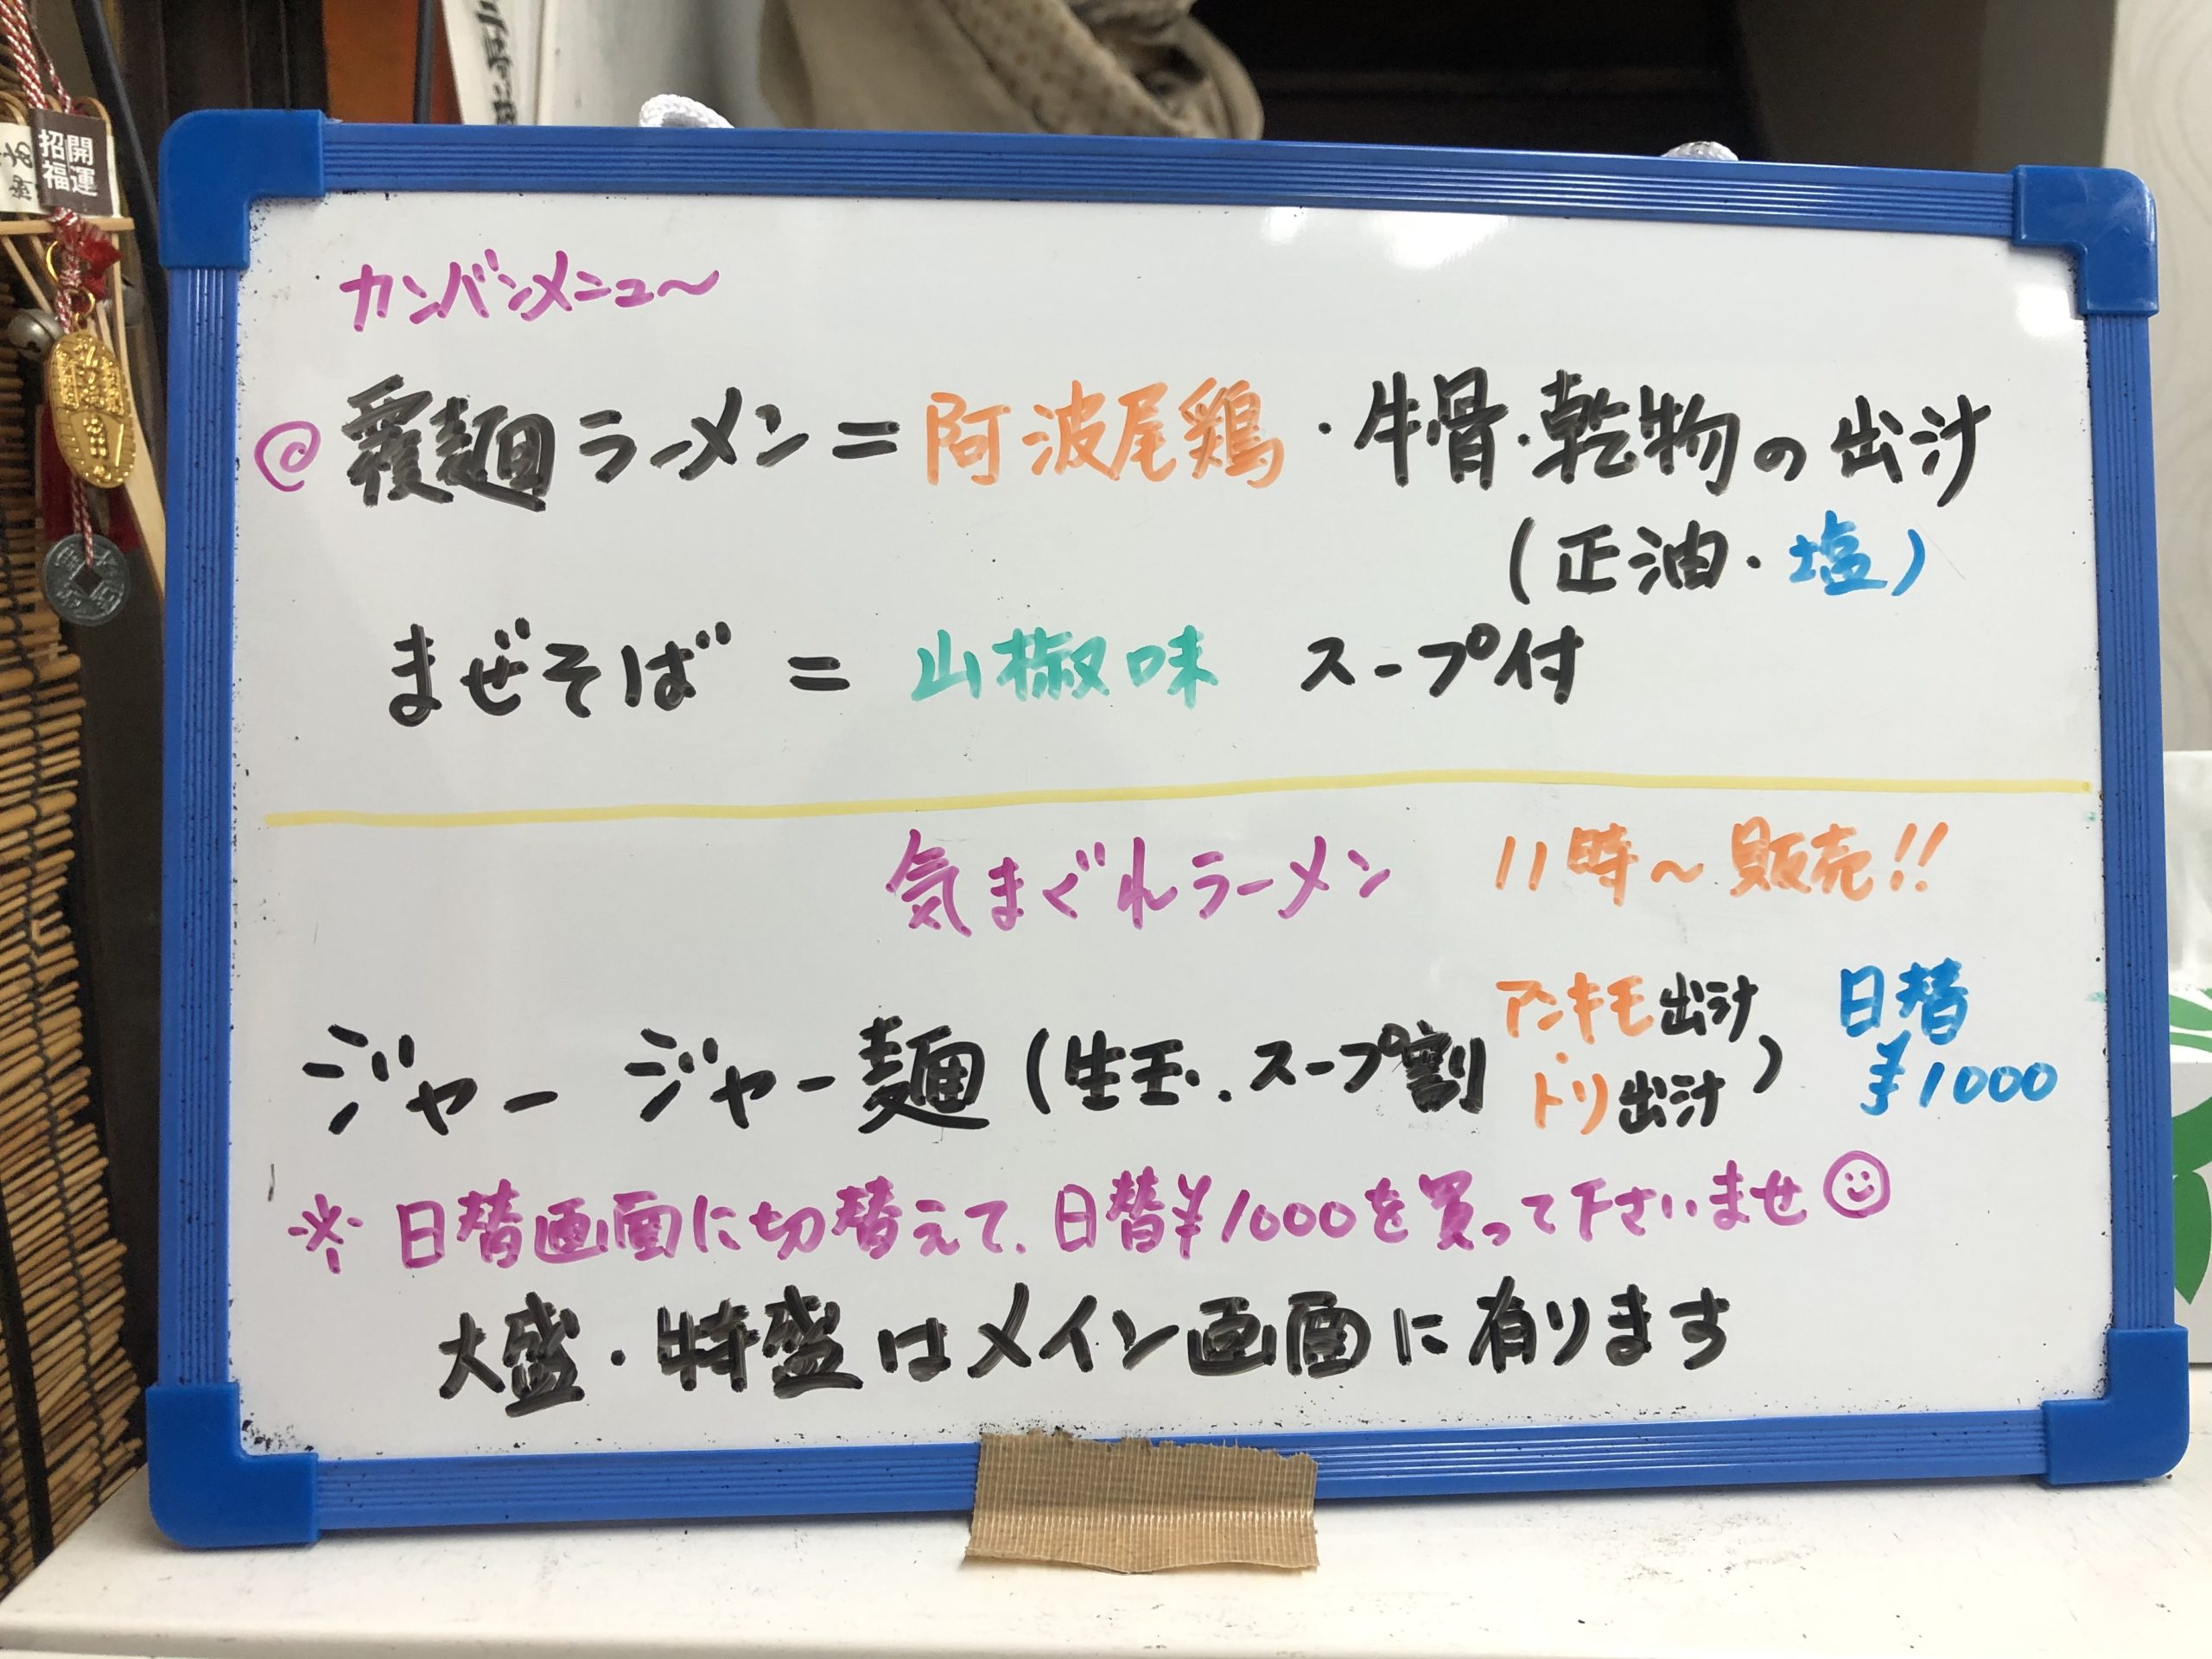 開運
招福
カンバンメニュ〜
@覆麺ラーメン=阿波尾鶏・牛骨・乾物の出汁
(正油・塩)
まぜそば=山椒味 スープ付
気まぐれラーメン 11時〜販売!!
ジャージャー麺(生玉、スープ割 アンキモ出汁・トリ出汁) 日替¥1000
※日替画面に切替えて、日替¥1000を買って下さいませ☺
大盛・特盛はメイン画面に有ります